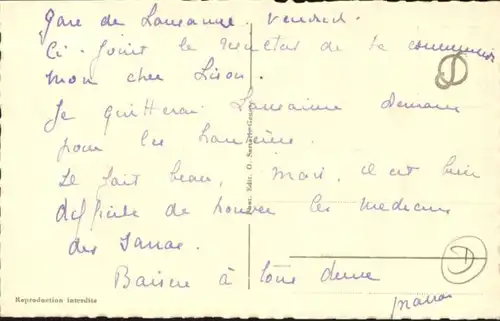 Gare de Lausanne. Vendredi.
Ci-joint le resultat de ta commission
mon cher Lison.
Je quitterai Lausanne demain
pour les
Le fait beau, mais, il est bien
difficile de trouver les medecins
des sanas.
Baisers à tous deux
D
D
Edit. O.
Reproduction interdite